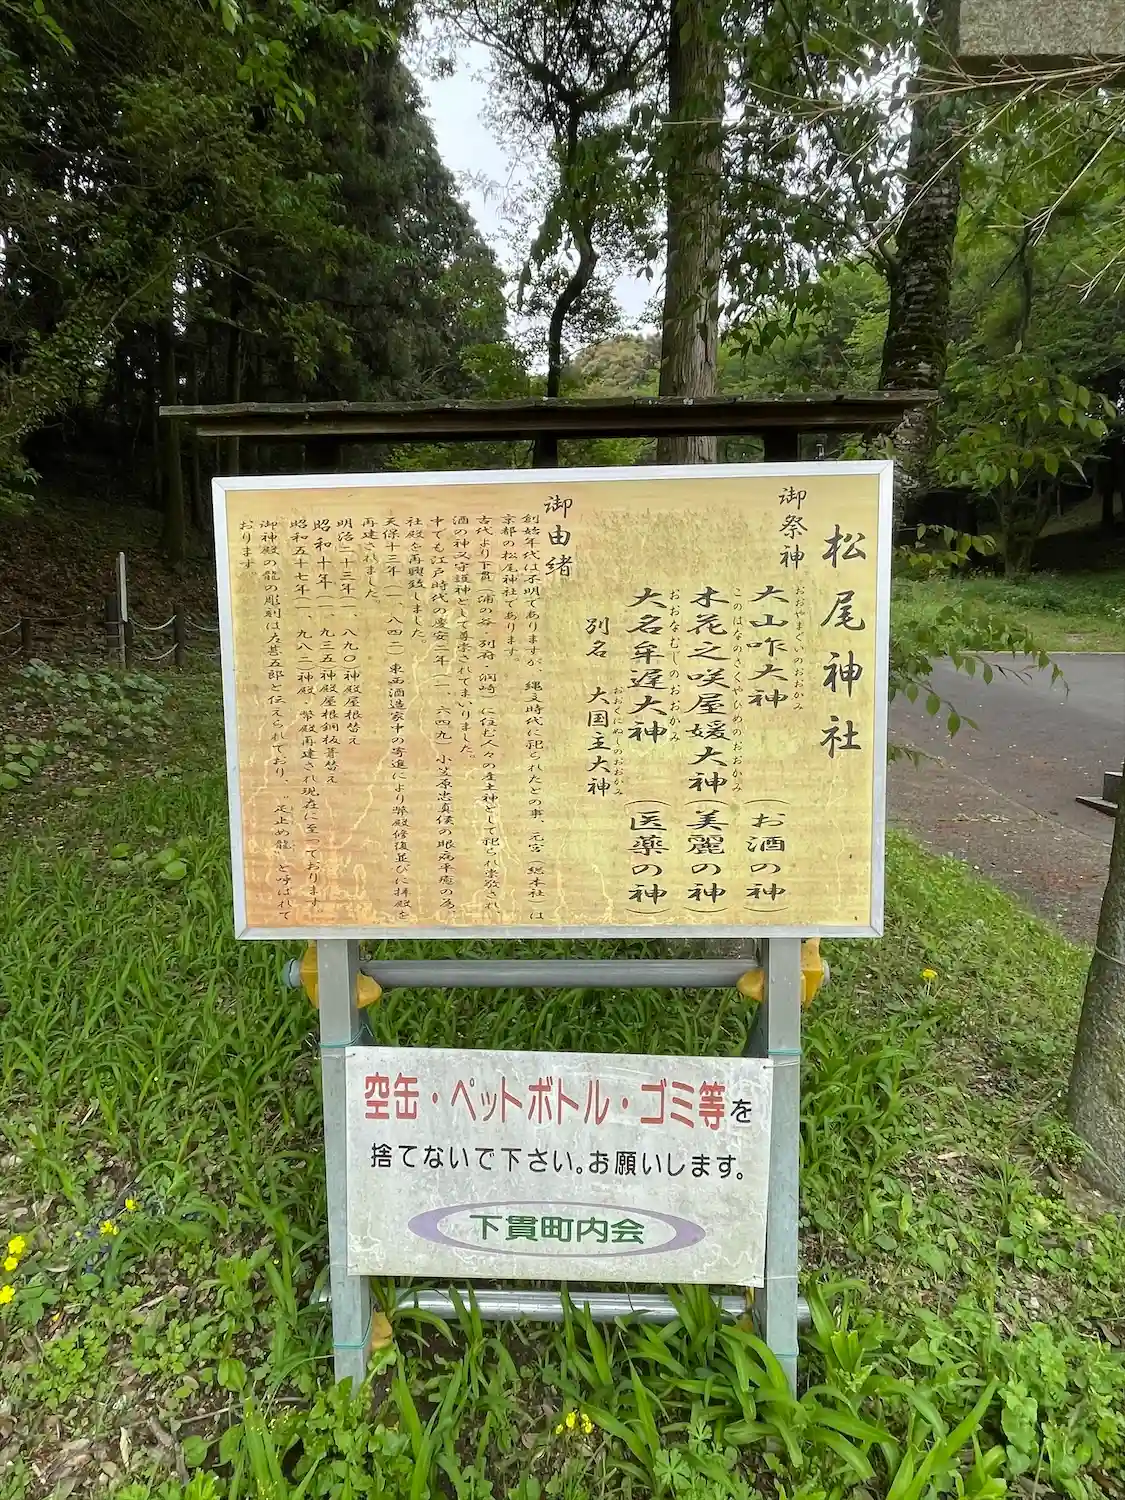 松尾神社
御祭神
大山咋大神（お酒の神）
おおやまぐいのおおかみ
木花之咲屋媛大神（美麗の神）
このはなのさくやひめのおおかみ
大名牟遅大神（医薬の神）
おおなむじのおおかみ
別名　大国主大神
おおくにぬしのおおかみ
御由緒
創始年代は不明でありますが、縄文時代に祀られたとの事、元宮（総本社）は
京都の松尾神社であります。
古代より下貫、浦の谷、別府、洞崎、に住む人々の産土神として祀られ崇敬され、
酒の神又守護神として尊崇されてまいりました。
中でも江戸時代の慶安二年（一、六四九）小笠原忠真侯の眼病平癒の為、
社殿を再興致しました。
天保十三年（一、八四二）東西酒造家中の寄進により弊殿修復並びに拝殿を
再建されました。
明治二十三年（一、八九〇）神殿屋根替え
昭和十年（一、九三五）神殿屋根銅板葺替え
昭和五十七年（一、九八二）神殿、弊殿再建され現在に至っております。
御神殿の龍の彫刻は左甚五郎と伝えられており、〝足止め龍〟と呼ばれて
おります。
空缶・ペットボトル・ゴミ等を
捨てないで下さい。お願いします。
下貫町内会